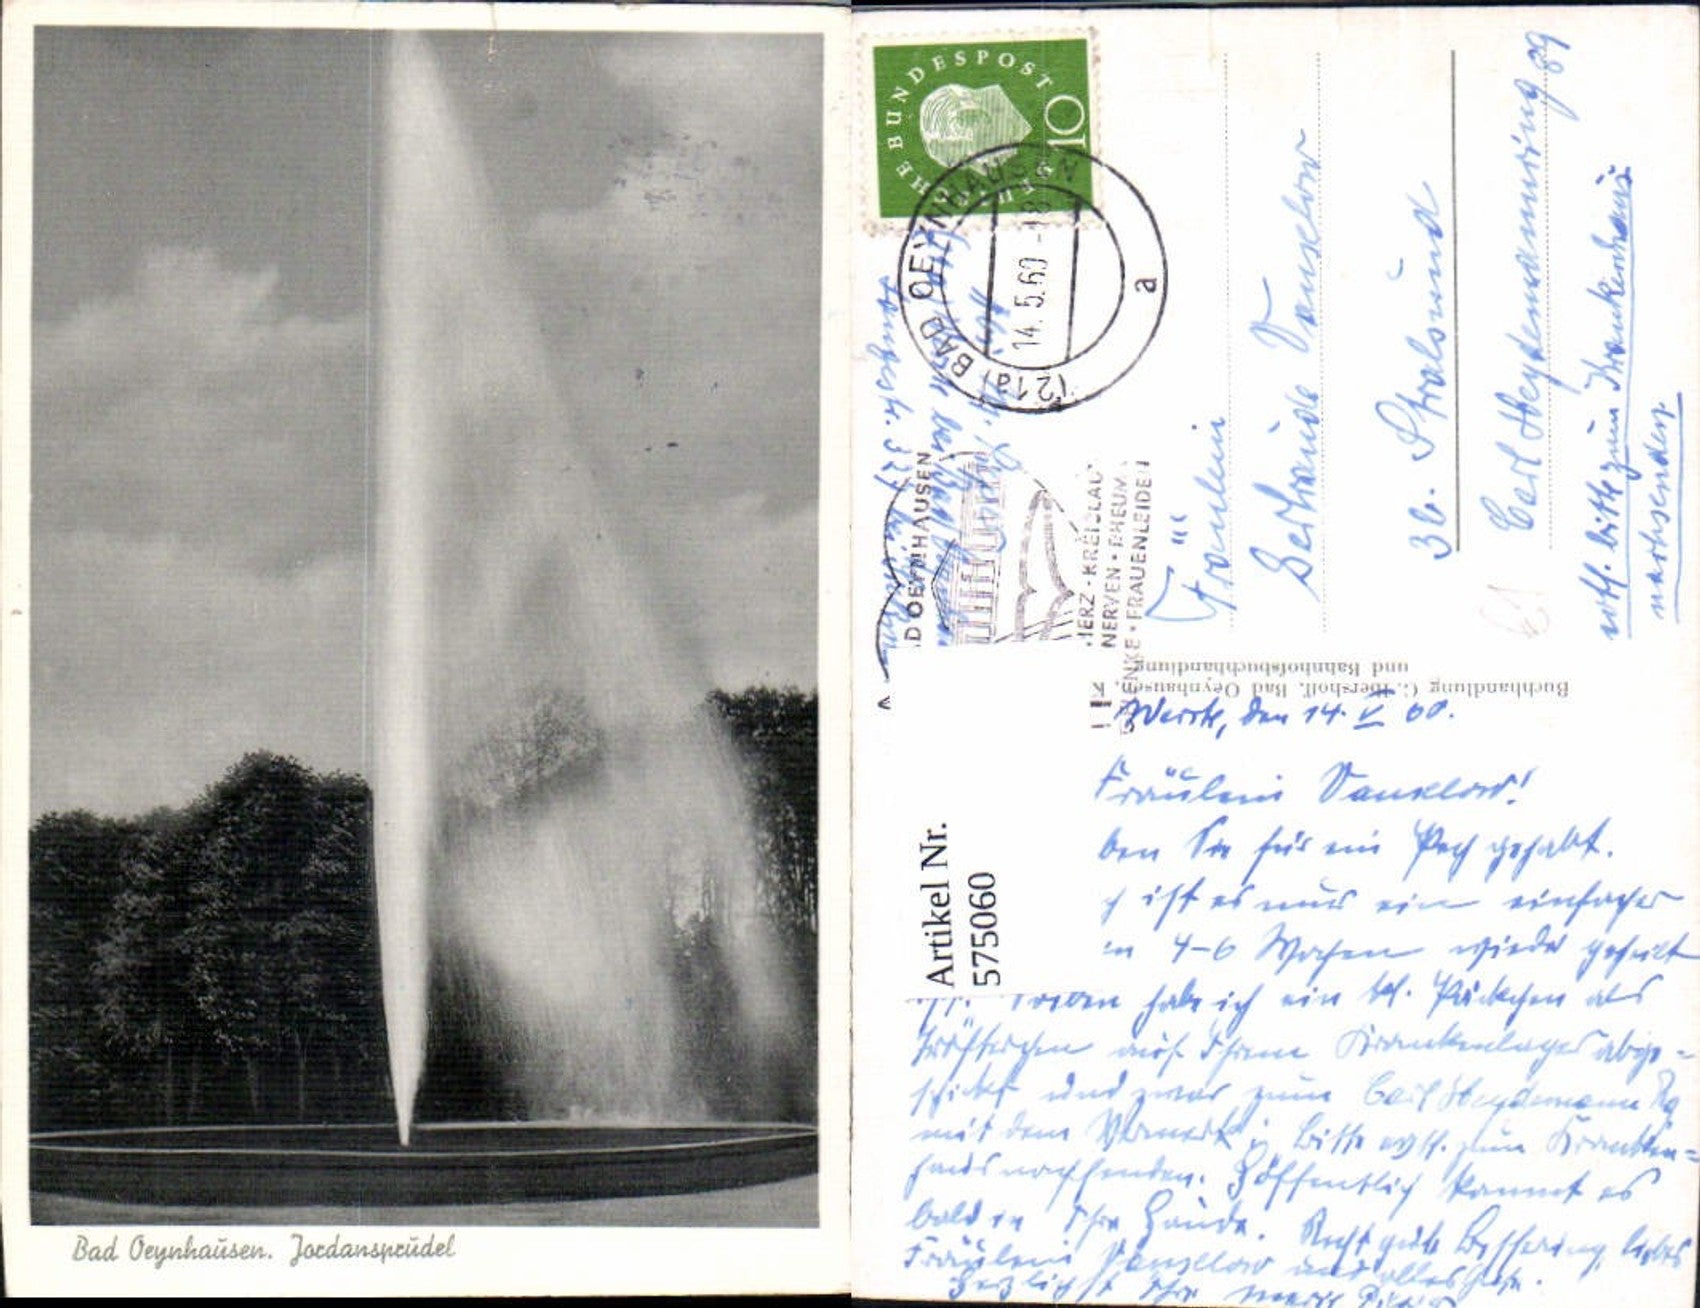 Bad Oeynhausen. Jordansprudel
DEUTSCHE BUNDESPOST
10
(21a) BAD OEYNHAUSEN
14. 5. 60 - 18
a
BAD OEYNHAUSEN
HERZ - KREISLAUF
NERVEN • RHEUMA
GELENKE • FRAUENLEIDEN
Fräulein
Gertraude Vanselow
3b. Stralsund
Carl Heydemannring 89
evtl. bitte zum Krankenhaus
nachsenden
Buchhandlung C. Ibershoff, Bad Oeynhausen,
und Bahnhofsbuchhandlung
Artikel Nr.
575060
Werste, den 14. V 60.
Fräulein Vanselow!
ben Sie für ein Pech gehabt.
ist es nur ein einfacher
in 4-6 Wochen wieder geheilt
ist. Soeben habe ich ein kl. Päckchen als
Trösterchen auf Ihrem Krankenlager abge-
schickt und zwar zum Carl Heydemann Rg
mit dem Vermerk: Bitte evtl. zum Kranken-
haus nachsenden. Hoffentlich kommt es
bald in Ihre Hände. Recht gute Besserung, liebes
Fräulein Vanselow und alles Gute.
Herzlichst Ihre